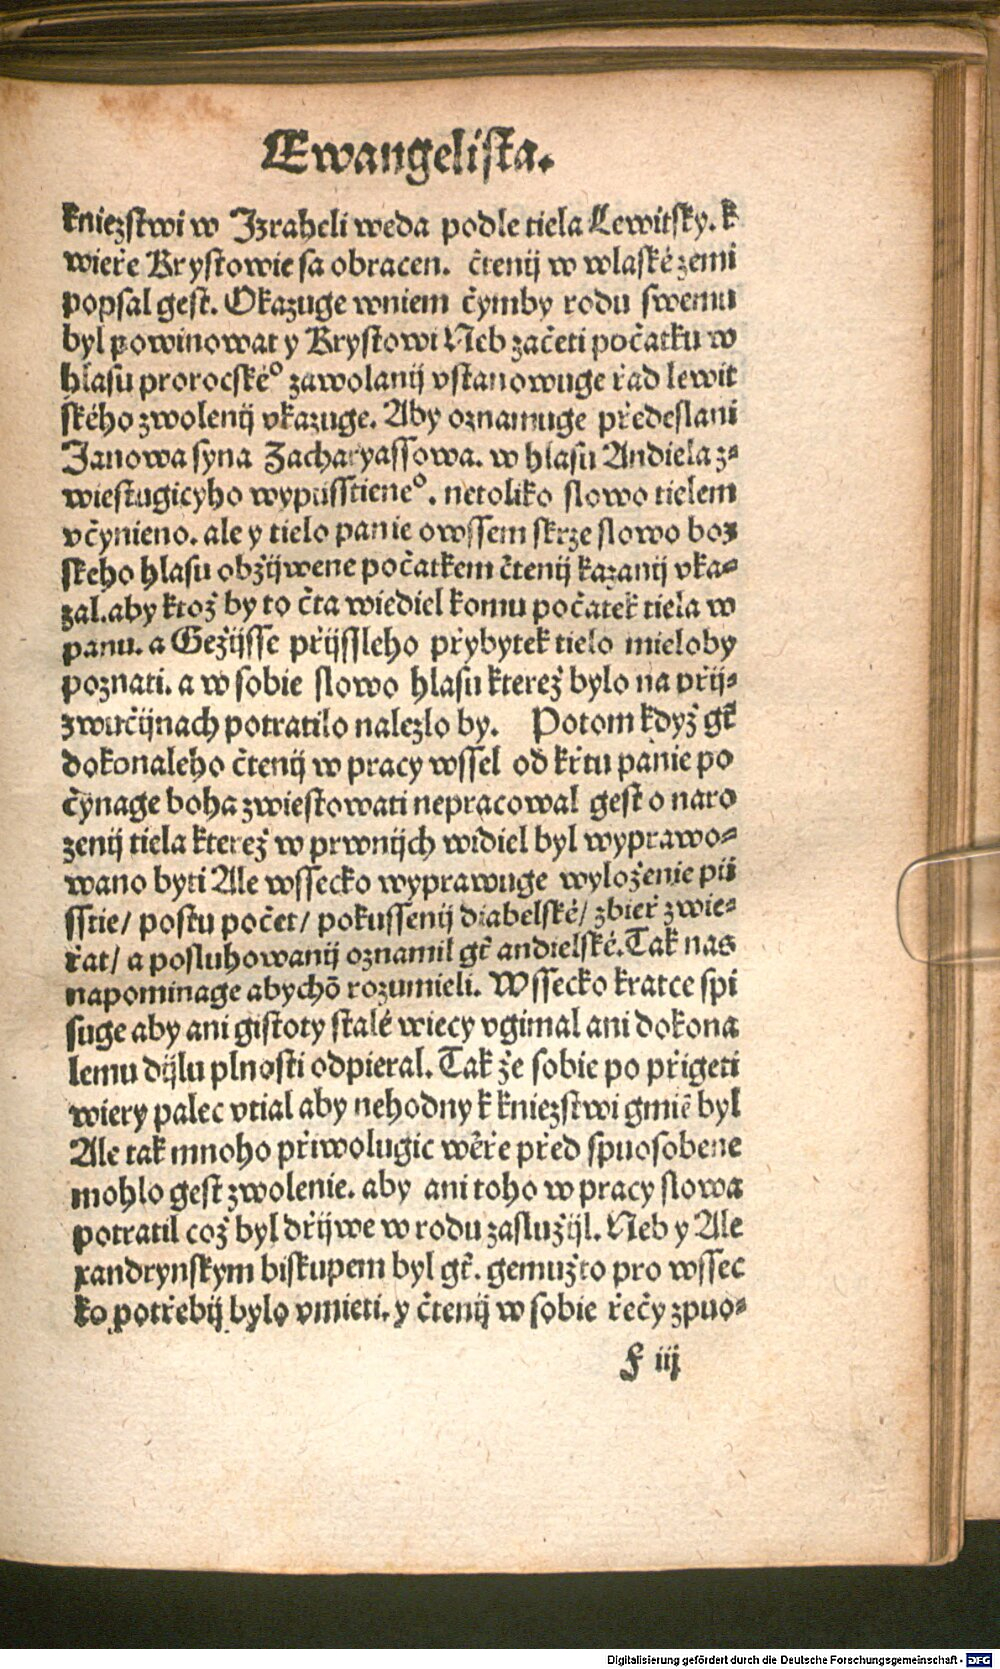 Ewangelista.
kniezstwi w Izraheli weda podle tiela Lewitsky. k
wieře Krystowie sa obracen. čtenij w wlaské zemi
popsal gest. Okazuge wniem čymby rodu swemu
byl powinowat y Krystowi Neb začeti počatku w
hlasu prorocskéº zawolanij vstanowuge řad lewit
ského zwolenij vkazuge. Aby oznamuge předeslani
Janowa syna Zacharyassowa. w hlasu Andiela z⸗
wiestugicyho wypusstieneº. netoliko slowo tielem
včynieno. ale y tielo panie owssem skrze slowo boz
skeho hlasu obžijwene počatkem čtenij kazanij vka⸗
zal. aby ktož by to čta wiediel komu počatek tiela w
panu. a Gežijsse přijssleho přybytek tielo mieloby
poznati. a w sobie slowo hlasu kterež bylo na přij⸗
zwučijnach potratilo nalezlo by. Potom když gt̃
dokonaleho čtenij w pracy wssel od křtu panie po
čynage boha zwiestowati nepracowal gest o naro
zenij tiela kterež w prwnijch widiel byl wyprawo⸗
wano byti Ale wssecko wyprawuge wyloženie pů
sstie/ postu počet/ pokussenij diabelské/ zbieř zwie⸗
řat/ a posluhowanij oznamil gt̃ andielské. Tak nas
napominage abychõ rozumieli. Wssecko kratce spi
suge aby ani gistoty stalé wiecy vgimal ani dokona
lemu dijlu plnosti odpieral. Tak že sobie po přigeti
wiery palec vtial aby nehodny k kniezstwi gmiẽ byl
Ale tak mnoho přiwolugic wẽře před spuosobene
mohlo gest zwolenie. aby ani toho w pracy slowa
potratil což byl dřijwe w rodu zaslužijl. Neb y Ale
xandrynskym biskupem byl gt̃. gemužto pro wssec
ko potřebij bylo vmieti. y čtenij w sobie řečy zpuo⸗
F iij
Digitalisierung gefördert durch die Deutsche Forschungsgemeinschaft - DFG